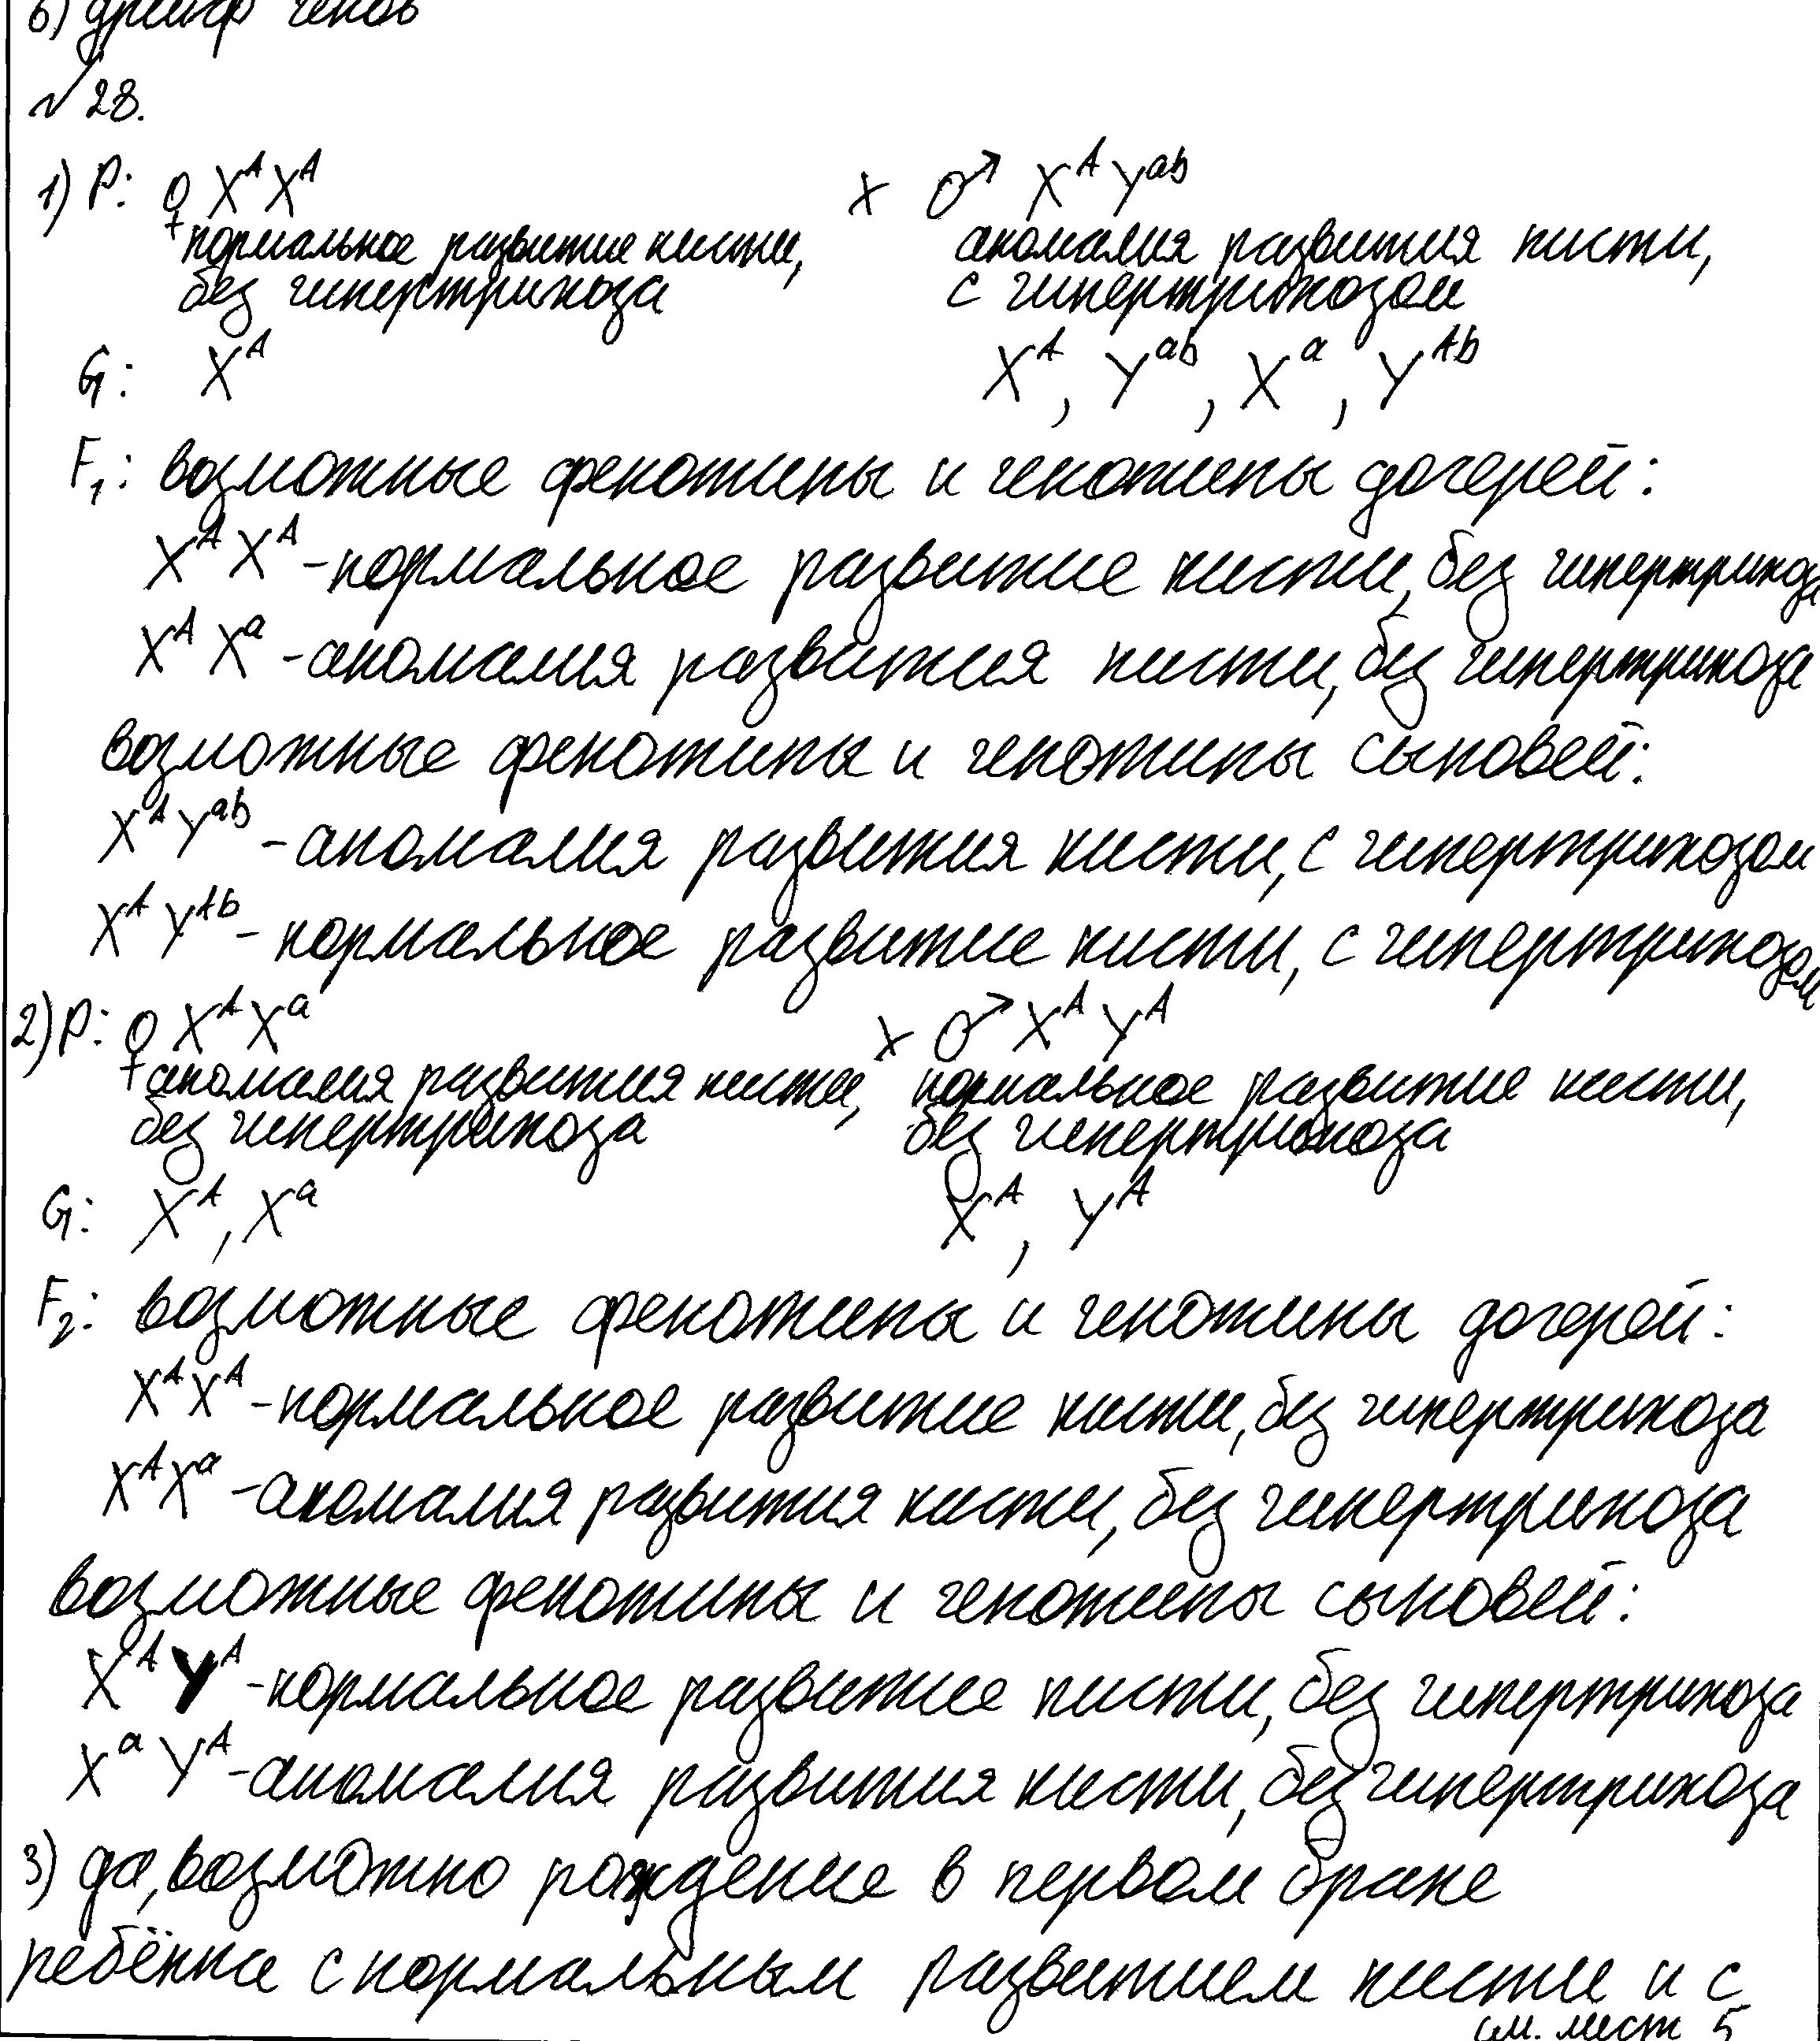 6) дрейф генов
№ 28.
1) P: ♀ XᴬXᴬ x ♂ XᴬYᵃᵇ
нормальное развитие кисти, аномалия развития кисти,
без гипертрихоза с гипертрихозом
G: Xᴬ Xᴬ, Yᵃᵇ, Xᵃ, Yᴬᵇ
F₁: возможные фенотипы и генотипы дочерей:
XᴬXᴬ - нормальное развитие кисти, без гипертрихоза
XᴬXᵃ - аномалия развития кисти, без гипертрихоза
возможные фенотипы и генотипы сыновей:
XᴬYᵃᵇ - аномалия развития кисти, с гипертрихозом
XᴬYᴬᵇ - нормальное развитие кисти, с гипертрихозом
2) P: ♀ XᴬXᵃ x ♂ XᴬYᴬ
аномалия развития кисти, нормальное развитие кисти,
без гипертрихоза без гипертрихоза
G: Xᴬ, Xᵃ Xᴬ, Yᴬ
F₂: возможные фенотипы и генотипы дочерей:
XᴬXᴬ - нормальное развитие кисти, без гипертрихоза
XᴬXᵃ - аномалия развития кисти, без гипертрихоза
возможные фенотипы и генотипы сыновей:
XᴬYᴬ - нормальное развитие кисти, без гипертрихоза
XᵃYᴬ - аномалия развития кисти, без гипертрихоза
3) да, возможно рождение в первом браке
ребёнка с нормальным развитием кисти и с
см. лист 5